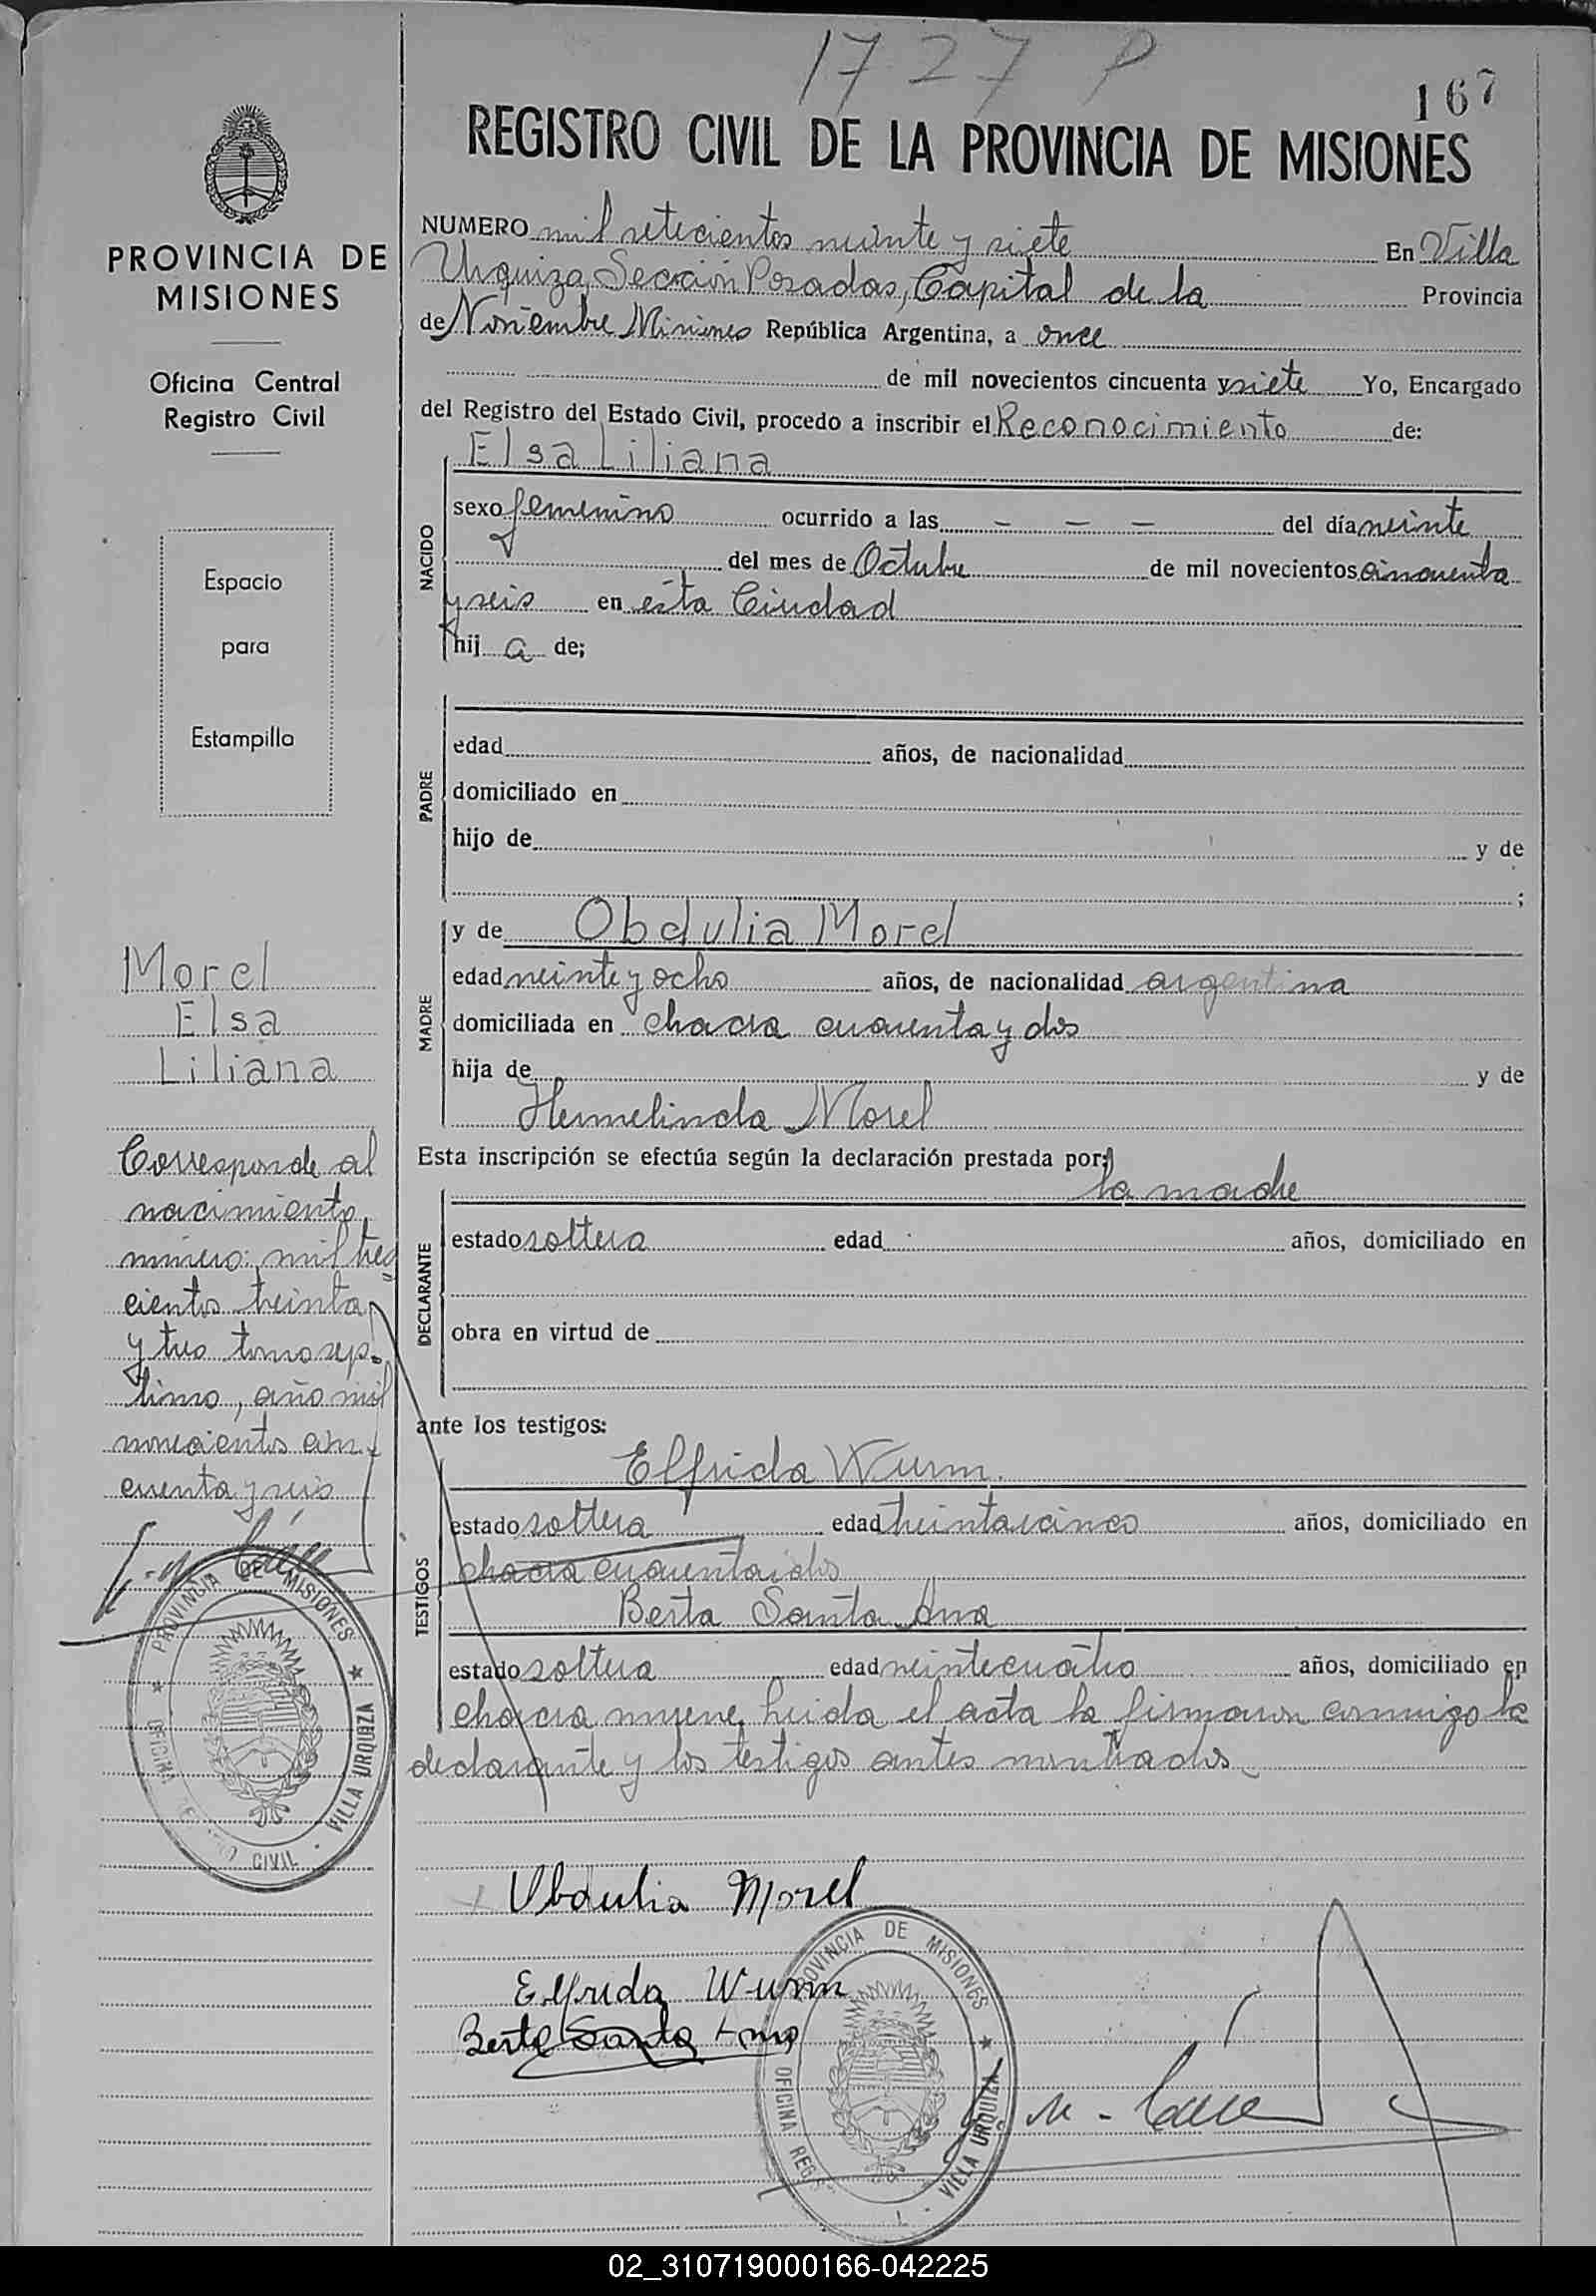 1727 P
167
REGISTRO CIVIL DE LA PROVINCIA DE MISIONES
PROVINCIA DE
MISIONES
Oficina Central
Registro Civil
Espacio
para
Estampilla
Morel
Elsa
Liliana
Corresponde al
nacimiento
número: mil tres
cientos treinta
y tres tomo sép-
timo, año mil
novecientos cin-
cuenta y seis
PROVINCIA DE MISIONES
OFICINA CIVIL - VILLA URQUIZA
NUMERO mil setecientos veinte y siete En Villa
Urquiza, Sección Posadas, Capital de la Provincia
de Noviembre Misiones República Argentina, a once
de mil novecientos cincuenta y siete Yo, Encargado
del Registro del Estado Civil, procedo a inscribir el Reconocimiento de:
Elsa Liliana
NACIDO
sexo femenino ocurrido a las - - - del día veinte
del mes de Octubre de mil novecientos cincuenta
y seis en esta Ciudad
hij a de;
PADRE
edad años, de nacionalidad
domiciliado en
hijo de y de
;
MADRE
y de Obdulia Morel
edad veinte y ocho años, de nacionalidad argentina
domiciliada en chacra cuarenta y dos
hija de y de
Hermelinda Morel
Esta inscripción se efectúa según la declaración prestada por:
la madre
DECLARANTE
estado soltera edad años, domiciliado en
obra en virtud de
ante los testigos:
TESTIGOS
Elfrida Wurm.
estado soltera edad treintaicinco años, domiciliado en
chacra cuarentaidos
Berta Santa Ana
estado soltera edad veinticuatro años, domiciliado en
chacra nueve, leida el acta la firmaron conmigo la
declarante y los testigos antes nombrados.
Obdulia Morel
Elfrida Wurm
Berta Santa Ana
PROVINCIA DE MISIONES
OFICINA REGIS - VILLA URQUIZA
02_310719000166-042225